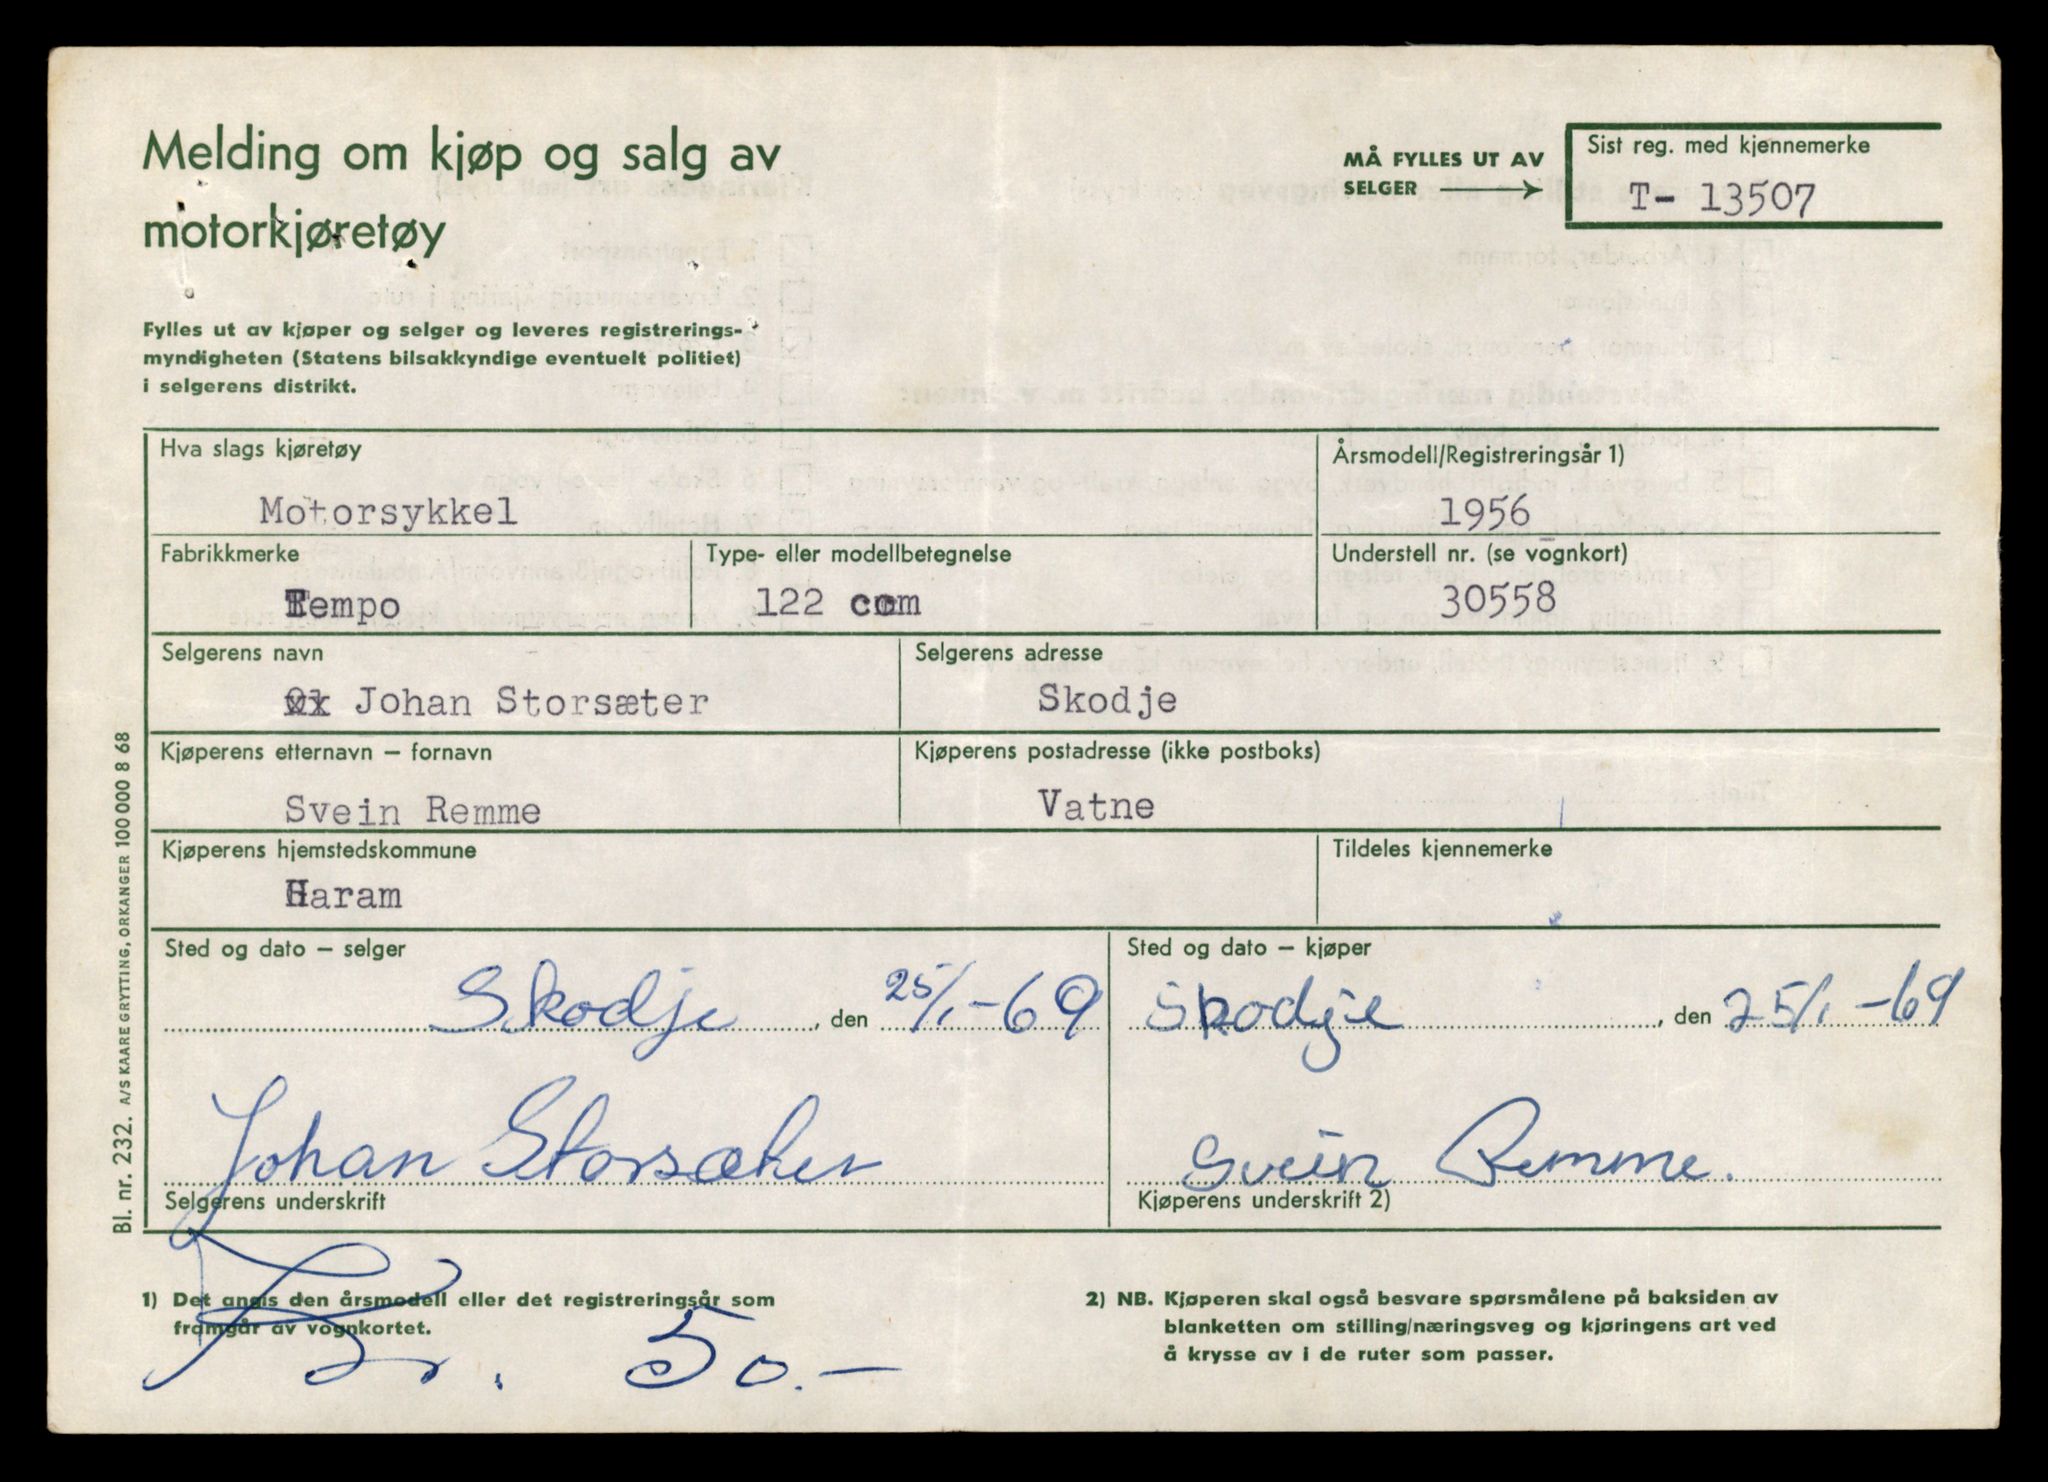 Melding om kjøp og salg av
motorkjøretøy
MÅ FYLLES UT AV
SELGER
Sist reg. med kjennemerke
T- 13507
Fylles ut av kjøper og selger og leveres registrerings-
myndigheten (Statens bilsakkyndige eventuelt politiet)
i selgerens distrikt.
Hva slags kjøretøy
Motorsykkel
Årsmodell/Registreringsår 1)
1956
Fabrikkmerke
Tempo
Type- eller modellbetegnelse
122 ccm
Understell nr. (se vognkort)
30558
Selgerens navn
Johan Storsæter
Selgerens adresse
Skodje
Kjøperens etternavn – fornavn
Svein Remme
Kjøperens postadresse (ikke postboks)
Vatne
Kjøperens hjemstedskommune
Haram
Tildeles kjennemerke
Sted og dato – selger
Skodje, den 25/1-69
Sted og dato – kjøper
Skodje, den 25/1-69
Johan Storsæter
Selgerens underskrift
Svein Remme.
Kjøperens underskrift 2)
1) Det angis den årsmodell eller det registreringsår som
framgår av vognkortet.
Kr. 50.-
2) NB. Kjøperen skal også besvare spørsmålene på baksiden av
blanketten om stilling/næringsveg og kjøringens art ved
å krysse av i de ruter som passer.
Bl. nr. 232. A/S KAARE GRYTTING, ORKANGER 100 000 8 68